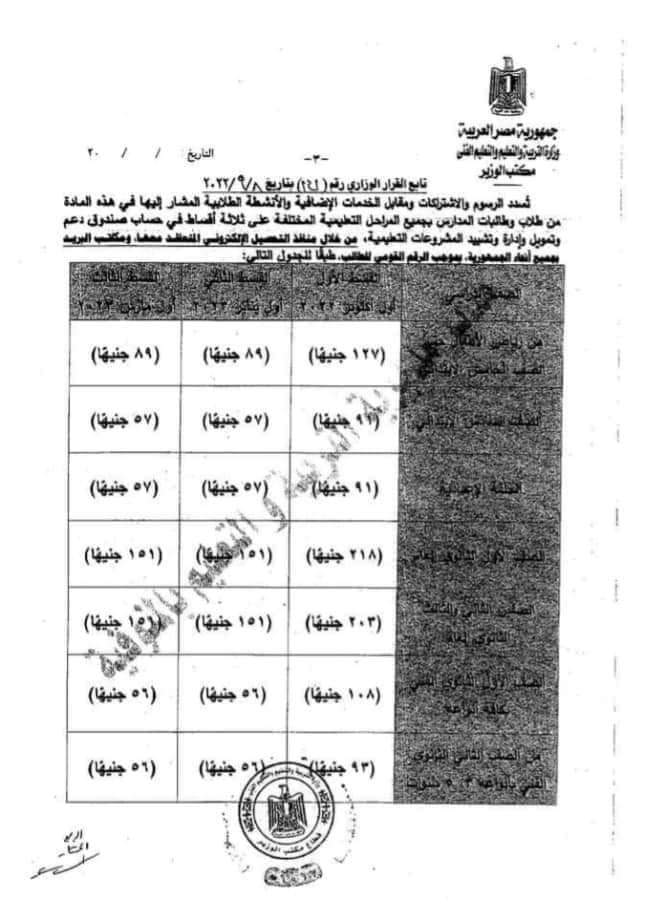 جمهورية مصر العربية
وزارة التربية والتعليم والتعليم الفني
مكتب الوزير
التاريخ / / ٢٠
-٣-
تابع القرار الوزاري رقم (٢٤١) بتاريخ ٢٠٢٢/٩/٨
تُسدد الرسوم والاشتراكات ومقابل الخدمات الإضافية والأنشطة الطلابية المشار إليها في هذه المادة
من طلاب وطالبات المدارس بجميع المراحل التعليمية المختلفة على ثلاثة أقساط في حساب صندوق دعم
وتمويل وإدارة وتشييد المشروعات التعليمية، من خلال منافذ التحصيل الإلكتروني المتعاقد معها، ومكاتب البريد
بجميع أنحاء الجمهورية، بموجب الرقم القومي للطالب، طبقًا للجدول التالي:
الصف الدراسي | القسط الأول أول أكتوبر ٢٠٢٢ | القسط الثاني أول يناير ٢٠٢٣ | القسط الثالث أول مارس ٢٠٢٣
من رياض الأطفال حتى الصف الخامس الابتدائي | (١٢٧ جنيهًا) | (٨٩ جنيهًا) | (٨٩ جنيهًا)
الصف السادس الابتدائي | (٩١ جنيهًا) | (٥٧ جنيهًا) | (٥٧ جنيهًا)
الحلقة الإعدادية | (٩١ جنيهًا) | (٥٧ جنيهًا) | (٥٧ جنيهًا)
الصف الأول الثانوي العام | (٢١٨ جنيهًا) | (١٥١ جنيهًا) | (١٥١ جنيهًا)
الصفين الثاني والثالث الثانوي العام | (٢٠٣ جنيهًا) | (١٥١ جنيهًا) | (١٥١ جنيهًا)
الصف الأول الثانوي الفني بكافة أنواعه | (١٠٨ جنيهًا) | (٥٦ جنيهًا) | (٥٦ جنيهًا)
من الصف الثاني الثانوي الفني بأنواعه ٣، ٥ سنوات | (٩٣ جنيهًا) | (٥٦ جنيهًا) | (٥٦ جنيهًا)
التربية والتعليم بالمنوفية
قطاع مكتب الوزير